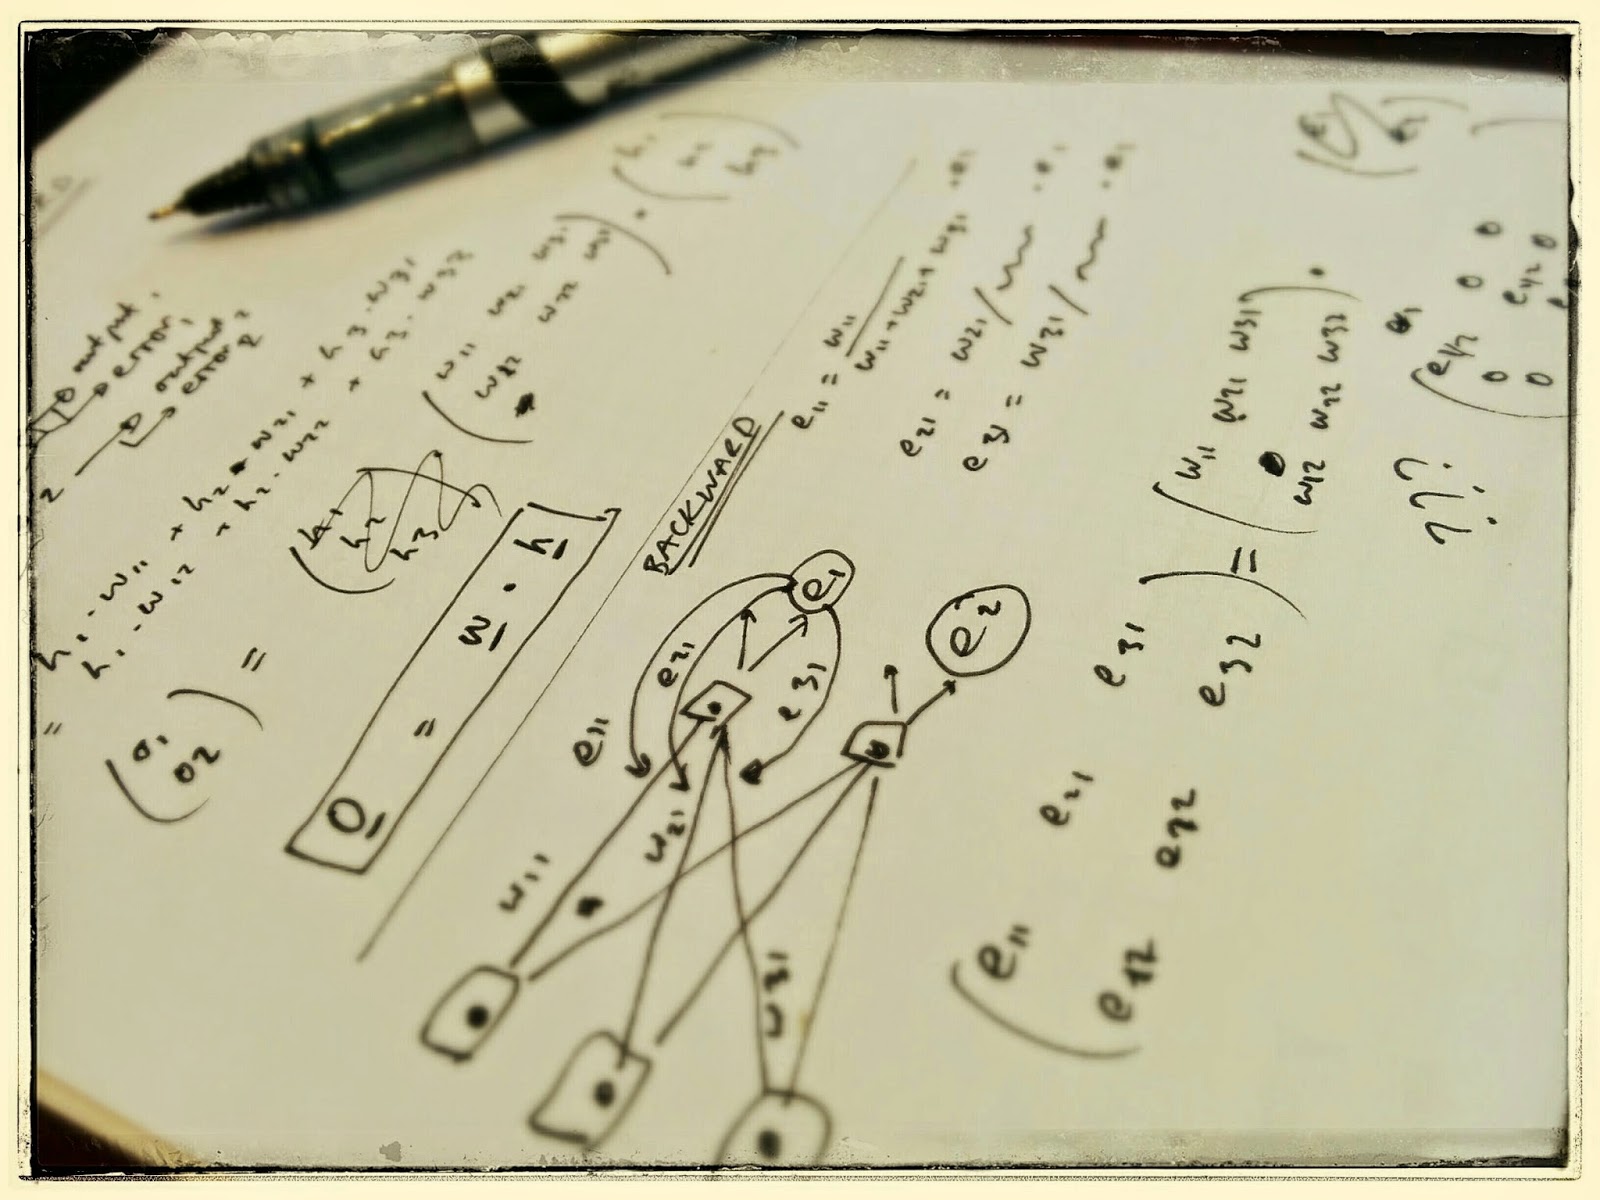 output 1
error 1
output 2
error 2
2
= h1 · w11 + h2 · w21 + h3 · w31
h1 · w12 + h2 · w22 + h3 · w32
(h1 h2 h3)
(w11 w21 w31) · (h1
w22 w32) h2
h3)
(o1
o2) =
O = w · h
BACKWARD
e11 = w11 / w11 + w21 + w31 · e1
e21 = w21 / · e1
e31 = w31 / · e1
e1
e2
e11
e21
e31
w11
w21
w31
(e11 e21 e31) = (w11 w21 w31) ·
e12 e22 e32 w12 w22 w32
(e1 e2)
(e1/2 0 0
0 e1/2 0
0
???